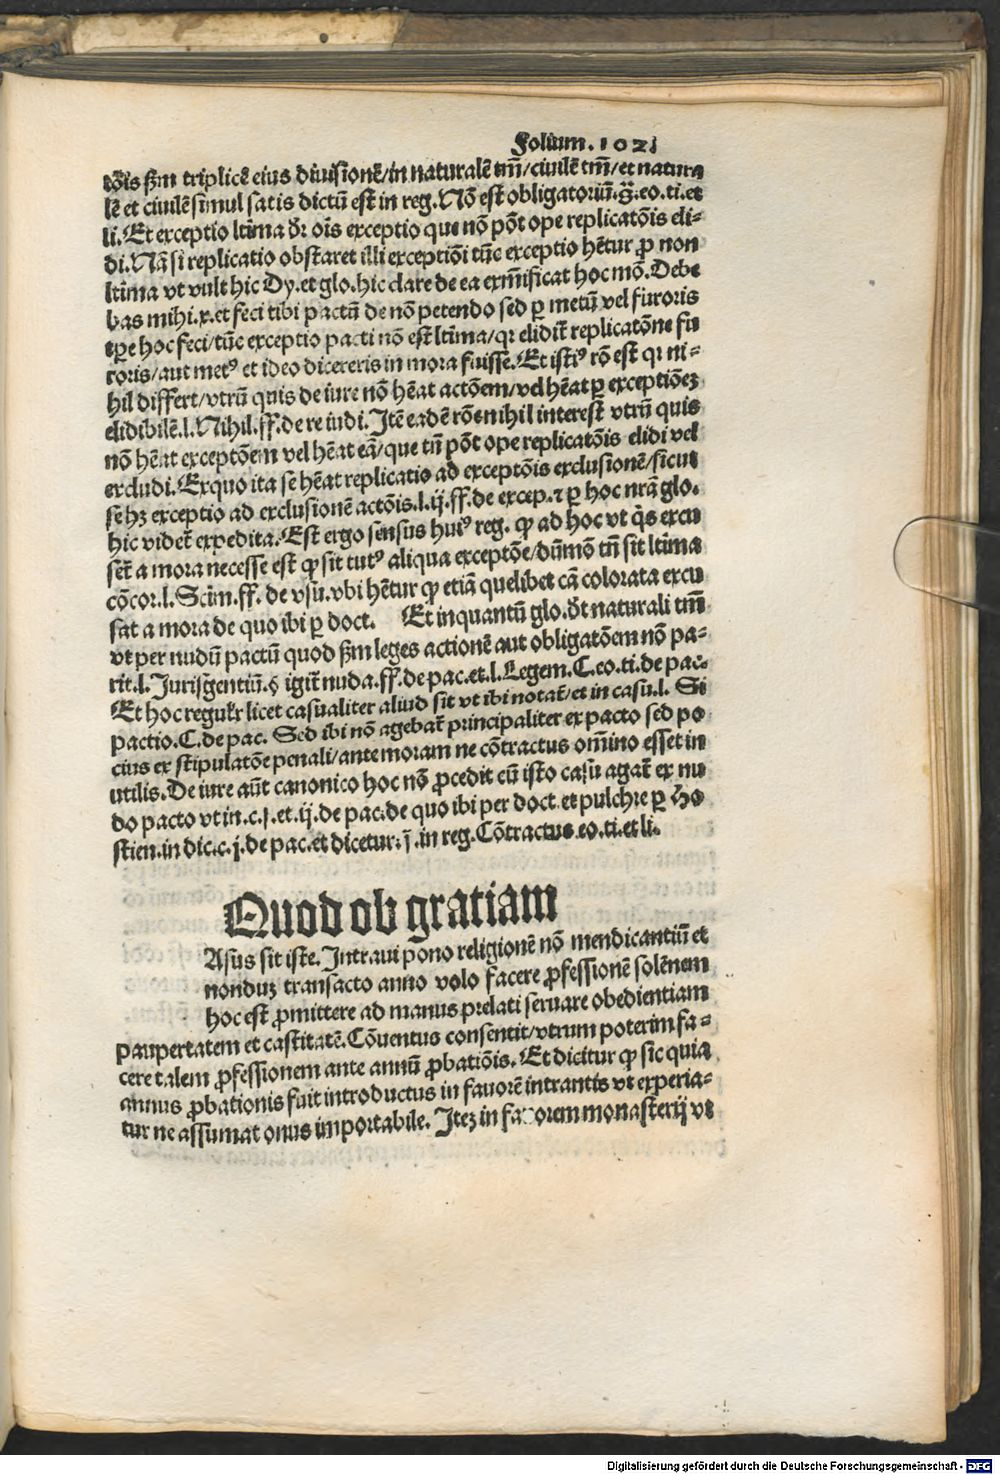 Foliũm.102
tõis ẜm triplicẽ eius diuisionẽ/in naturalẽ tm̃/ciuilẽ tm̃/et natura
lẽ et ciuilẽ simul satis dictũ est in reg.Nõ est obligatoriũ.g̃.eo.ti.et
li.Et exceptio ltima dr̃ oĩs exceptio que nõ põt ope replicatõis eli-
di.Nã si replicatio obstaret illi exceptiõi tũc exceptio hẽtur ꝓ non
ltima vt vult hic Dy.et glo.hic clare de ea exm̃ificat hoc mõ.Debe
bas mihi.x.et feci tibi pactũ de nõ petendo sed ꝑ metũ vel furoris
hoc feci/tũc exceptio pacti nõ est ltima/qꝛ elidit̃ replicatõne fu
roris/aut metꝰ et ideo diceréris in mora fuisse.Et istiꝰ rõ est qꝛ ni-
hil differt/vtrũ quis de iure nõ hẽat actõem/vel hẽat ꝑ exceptiõeꝫ
elidibilẽ.l.Nihil.ff.de re iudi.Itẽ eadẽ rõe nihil interest vtrũ quis
nõ hẽat exceptõem vel hẽat eã/que tñ põt ope replicatõis elidi vel
excludi.Exquo ita se hẽat replicatio ad exceptõis exclusionẽ/sicut
se hꝫ exceptio ad exclusionẽ actõis.l.ij.ff.de excep.⁊ ꝑ hoc nrã glo.
hic videt̃ expedita.Est ergo sensus huiꝰ reg. ꝙ ad hoc vt q̃s excu
set̃ a mora necesse est ꝙ sit tutꝰ aliqua exceptõe/dũmõ tñ sit ltima
cõcor.l.Scim.ff.de vsu.vbi hẽtur ꝙ etiã quelibet cã colorata excu
sat a mora de quo ibi ꝑ doct. Et inquantũ glo.dt̃ naturali tm̃
vt per nudũ pactũ quod ẜm leges actionẽ aut obligatõem nõ pa-
rit.l.Jurisgentiũ.§ igit̃ nuda.ff.de pac.et.l.Legem.C.eo.ti.de pac.
Et hoc regulr̃ licet casualiter aliud sit vt ibi notat̃/et in casu.l. Si
pactio.C.de pac. Sed ibi nõ agebat̃ principaliter ex pacto sed po
cius ex stipulatõe penali/ante moram ne cõtractus om̃ino esset in
utilis.De iure aũt canonico hoc nõ ꝓcedit cũ isto casu agat̃ ex nu
do pacto vt in.c.j.et.ij.de pac.de quo ibi per doct.et pulchre ꝑ Ho
stien.in dic.c.j.de pac.et dicetur.j̃.in reg.Cõtractus.eo.ti.et li.
Quod ob gratiam
Asus sit iste.Intraui pono religionẽ nõ mendicantiũ et
nonduꝫ transacto anno volo facere ꝓfessionẽ solẽnem
hoc est ꝓmittere ad manus prelati seruare obedientiam
paupertatem et castitatẽ.Cõuentus consentit/vtrum poterim fa-
cere talem ꝓfessionem ante annũ ꝓbatiõis. Et dicitur ꝙ sic quia
annus ꝓbationis fuit introductus in fauorẽ intrantis vt experia-
tur ne assumat onus importabile. Iteꝫ in fauorem monasterij vt
Digitalisierung gefördert durch die Deutsche Forschungsgemeinschaft - DFG